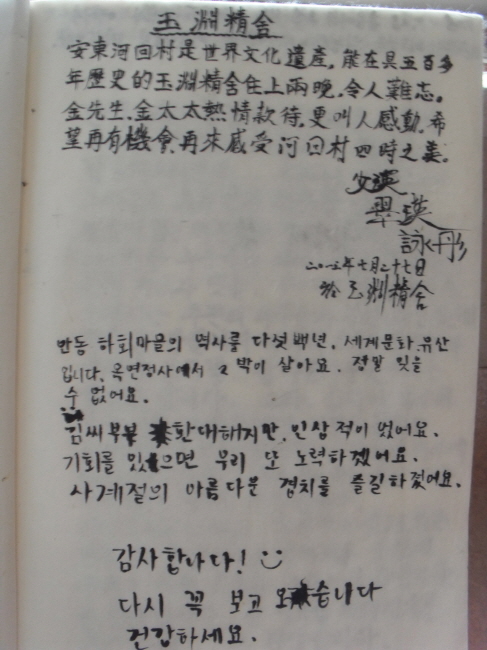 玉淵精舍
安東河回村是世界文化遺產，能在具五百多
年歷史的玉淵精舍住上兩晚，令人難忘。
金先生、金太太熱情款待，更叫人感動。希
望再有機會再來感受河回村四時之美。
翠瑛
詠彤
二〇一五年七月二十七日
於玉淵精舍
안동 하회마을의 역사를 다섯백년. 세계문화유산
입니다. 옥연정사에서 2박이 살아요. 정말 잊을
수 없어요.
김씨부부 환대해지만, 인상적이 었어요.
기회를 있으면 우리 또 노력하겠어요.
사계절의 아름다운 경치를 즐길하겠어요.
감사합니다! :)
다시 꼭 보고 오습니다
건강하세요.